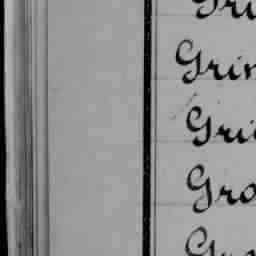 Gri
Grin
Gri
Gro
Gro